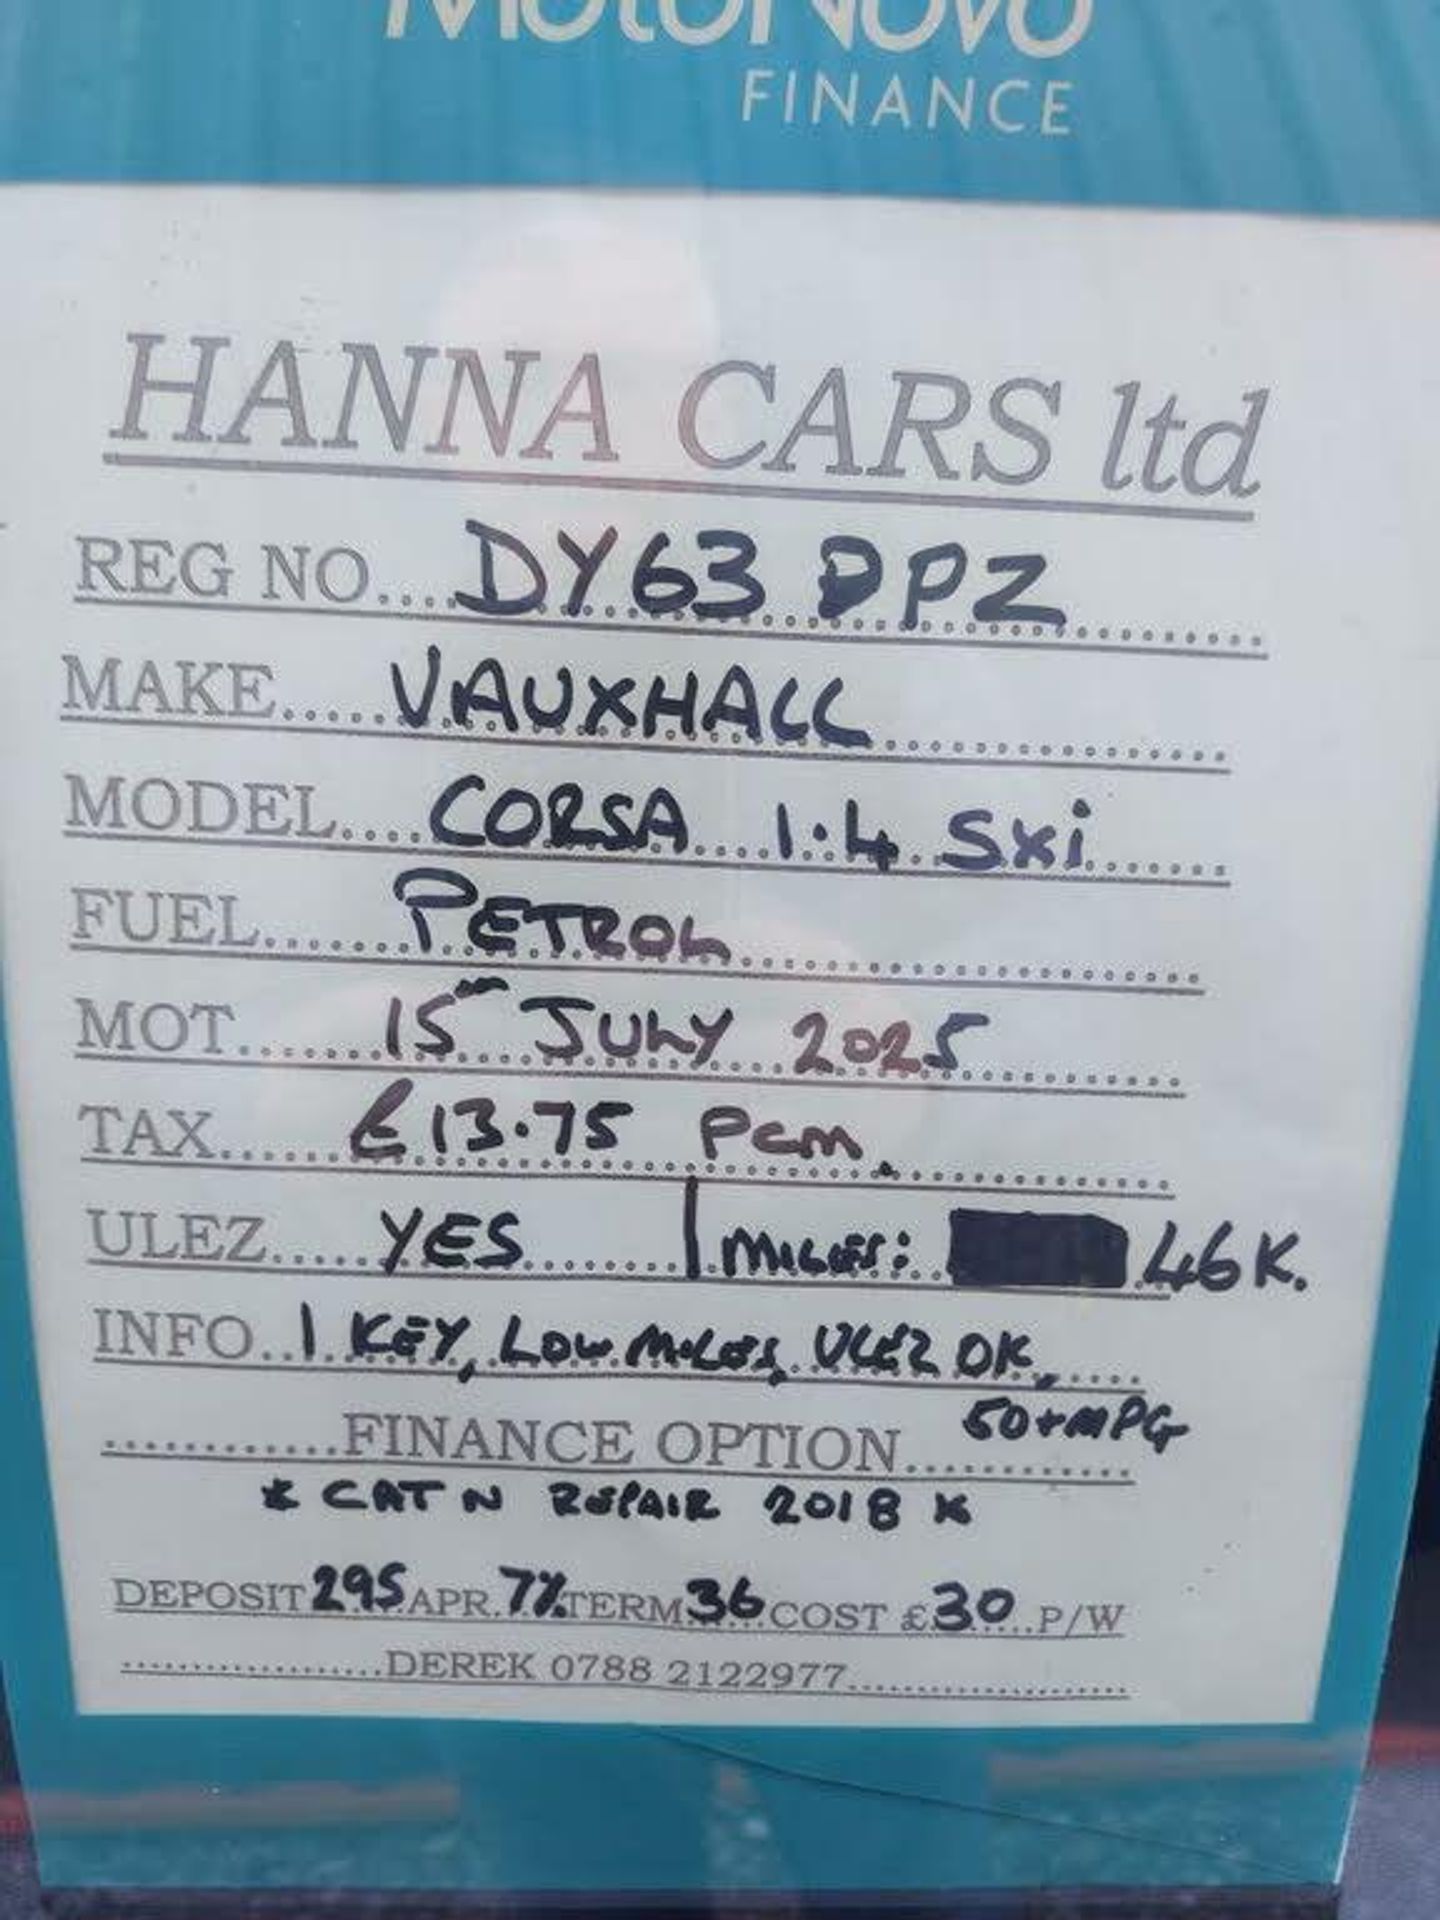 MotoNovo
FINANCE
HANNA CARS ltd
REG NO....DY63 DPZ
MAKE.....VAUXHALL
MODEL....CORSA 1.4 SXi
FUEL.......PETROL
MOT........15 JULY 2025
TAX........£13.75 pcm.
ULEZ.....YES | MILES: 46K.
INFO..1 KEY, LOW MILES, ULEZ OK,
50+MPG
............FINANCE OPTION............
* CAT N REPAIR 2018 *
DEPOSIT 295 APR. 7% TERM 36 COST £30 P/W
..................DEREK 0788 2122977..................